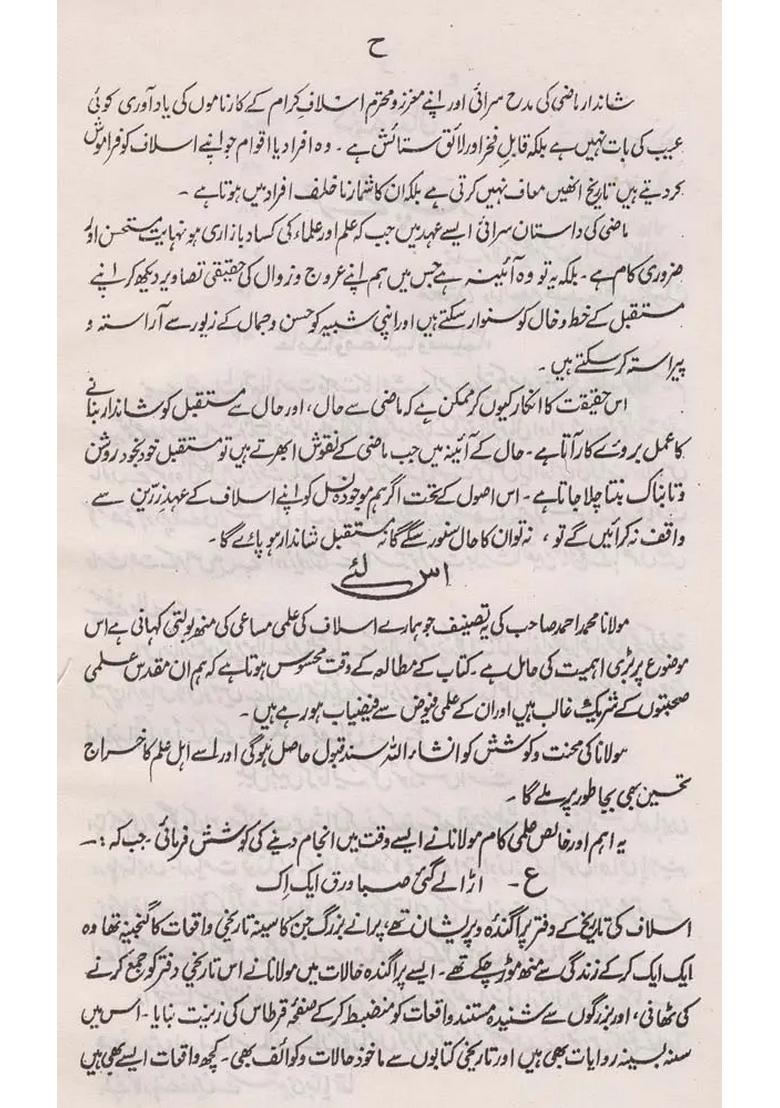 ح
شاندار ماضی کی مدح سرائی اور اپنے معزز و محترم اسلافِ کرام کے کارناموں کی یاد آوری کوئی
عیب کی بات نہیں ہے بلکہ قابلِ فخر اور لائق ستائش ہے ۔ وہ افراد یا اقوام جو اپنے اسلاف کو فراموش
کر دیتے ہیں تاریخ انھیں معاف نہیں کرتی ہے بلکہ ان کا شمار نا خلف افراد میں ہوتا ہے ۔
ماضی کی داستان سرائی ایسے عہد میں جب کہ علم اور علماء کی کساد بازاری ہو نہایت مستحسن اور
ضروری کام ہے ۔ بلکہ یہ تو وہ آئینہ ہے جس میں ہم اپنے عروج و زوال کی حقیقی تصاویر دیکھ کر اپنے
مستقبل کے خط و خال کو سنوار سکتے ہیں اور اپنی شبیہ کو حسن و جمال کے زیور سے آراستہ و
پیراستہ کر سکتے ہیں ۔
اس حقیقت کا انکار کیوں کر ممکن ہے کہ ماضی سے حال ، اور حال سے مستقبل کو شاندار بنانے
کا عمل بروئے کار آتا ہے ۔ حال کے آئینہ میں جب ماضی کے نقوش ابھرتے ہیں تو مستقبل خود بخود روشن
و تابناک بنتا چلا جاتا ہے ۔ اس اصول کے تحت اگر ہم موجودہ نسل کو اپنے اسلاف کے عہدِ زرین سے
واقف نہ کرائیں گے تو ، نہ تو ان کا حال سنور سکے گا نہ مستقبل شاندار ہو پائے گا ۔
اس لئے
مولانا محمد احمد صاحب کی یہ تصنیف جو ہمارے اسلاف کی علمی مساعی کی منھ بولتی کہانی ہے اس
موضوع پر بڑی اہمیت کی حامل ہے ۔ کتاب کے مطالعہ کے وقت محسوس ہوتا ہے کہ ہم ان مقدس علمی
صحبتوں کے شریک غالب ہیں اور ان کے علمی فیوض سے فیضیاب ہو رہے ہیں ۔
مولانا کی محنت و کوشش کو انشاء اللہ سند قبول حاصل ہوگی اور اسے اہل علم کا خراج
تحسین بھی بجا طور پر ملے گا ۔
یہ اہم اور خالص علمی کام مولانا نے ایسے وقت میں انجام دینے کی کوشش فرمائی ۔ جب کہ :۔
ع ۔ اڑا لے گئی صبا ورق ایک اِک
اسلاف کی تاریخ کے دفتر پراگندہ و پریشان تھے ، پرانے بزرگ جن کا سینہ تاریخی واقعات کا گنجینہ تھا وہ
ایک ایک کر کے زندگی سے منھ موڑ چکے تھے ۔ ایسے پراگندہ حالات میں مولانا نے اس تاریخی دفتر کو جمع کرنے
کی ٹھانی ، اور بزرگوں سے شنیدہ مستند واقعات کو منضبط کر کے صفحۂ قرطاس کی زینت بنایا ۔ اس میں
سینہ بسینہ روایات بھی ہیں اور تاریخی کتابوں سے ماخوذ حالات و کوائف بھی ۔ کچھ واقعات ایسے بھی ہیں